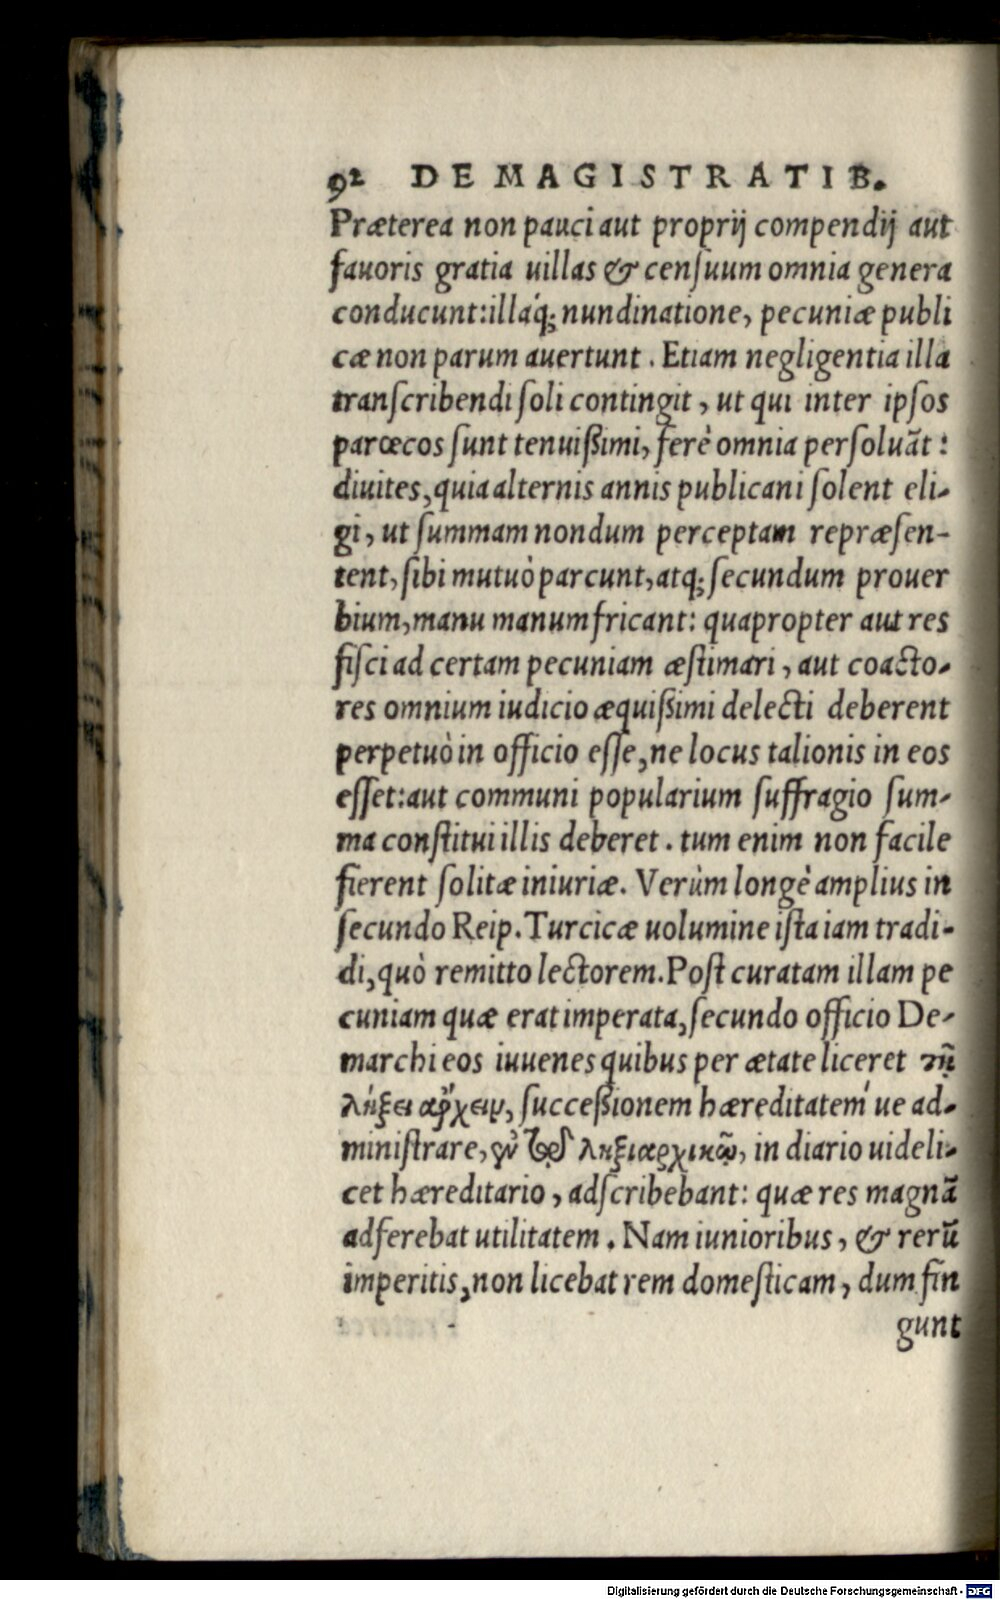 92 DE MAGISTRATIB.
Præterea non pauci aut proprij compendij aut
fauoris gratia uillas & censuum omnia genera
conducunt: illáq; nundinatione, pecuniæ publi
cæ non parum auertunt. Etiam negligentia illa
transcribendi soli contingit, ut qui inter ipsos
parœcos sunt tenuißimi, ferè omnia persoluãt:
diuites, quia alternis annis publicani solent eli-
gi, ut summam nondum perceptam repræsen-
tent, sibi mutuò parcunt, atq; secundum prouer
bium, manu manum fricant: quapropter aut res
fisci ad certam pecuniam æstimari, aut coacto-
res omnium iudicio æquißimi delecti deberent
perpetuò in officio esse, ne locus talionis in eos
esset: aut communi popularium suffragio sum-
ma constitui illis deberet. tum enim non facile
fierent solitæ iniuriæ. Verùm longè amplius in
secundo Reip. Turcicæ uolumine ista iam tradi-
di, quò remitto lectorem. Post curatam illam pe
cuniam quæ erat imperata, secundo officio De-
marchi eos iuuenes quibus per ætate liceret τῆ
λήξει ἄρχειν, succeßionem hæreditatem´ ue ad-
ministrare, ἐν τῷ ληξιαρχικῷ, in diario uideli-
cet hæreditario, adscribebant: quæ res magnã
adferebat utilitatem. Nam iunioribus, & rerũ
imperitis, non licebat rem domesticam, dum fin
gunt
Digitalisierung gefördert durch die Deutsche Forschungsgemeinschaft - DFG